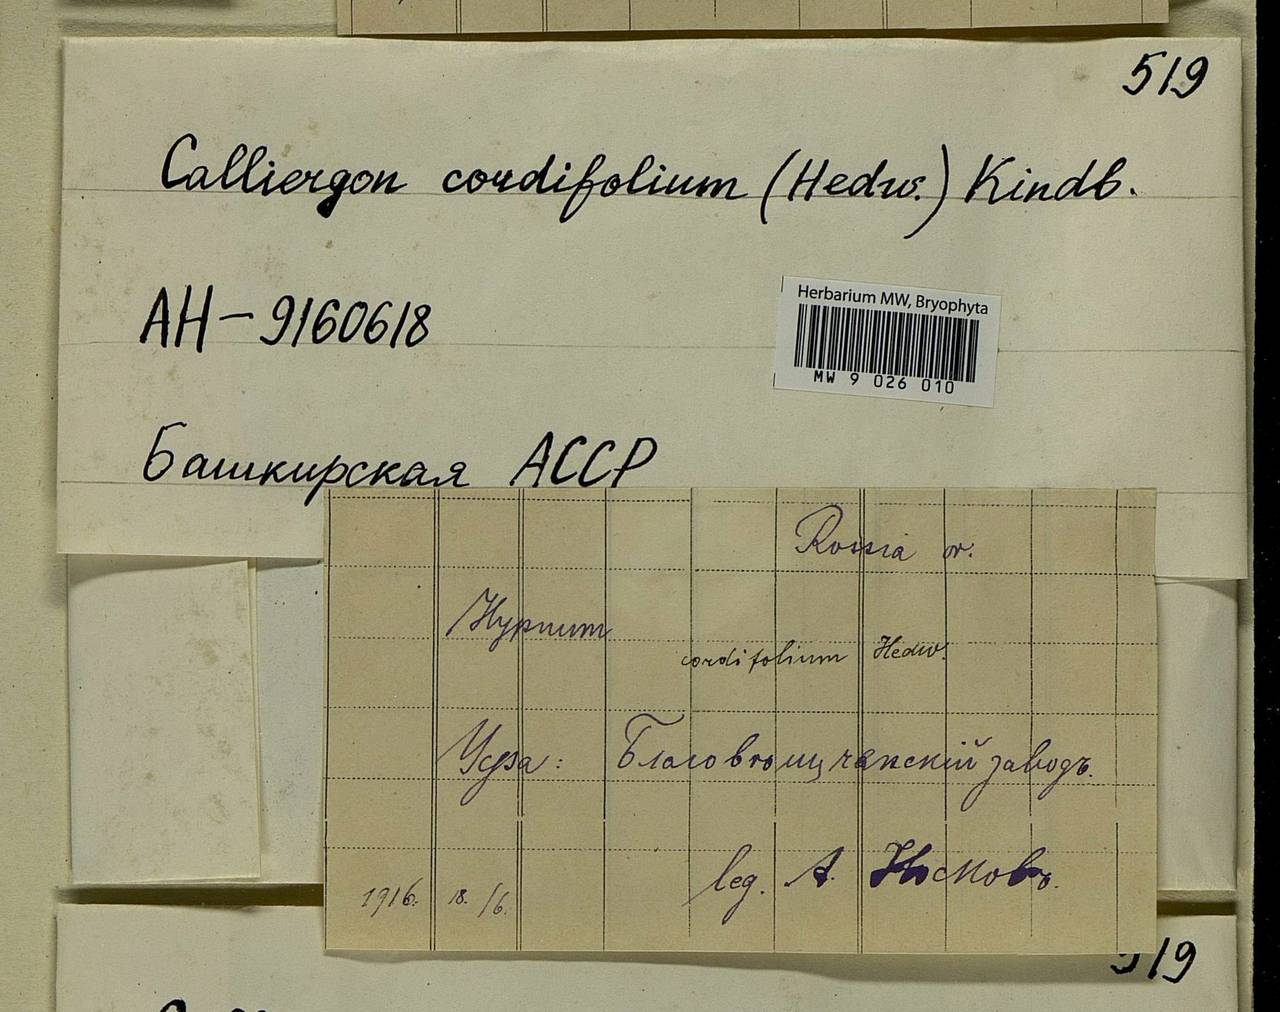 519
Calliergon cordifolium (Hedw.) Kindb.
АН-9160618
Herbarium MW, Bryophyta
MW 9 026 010
Башкирская АССР
Rossia or.
Hypnum
cordifolium Hedw.
Уфа: Благовѣщенскій заводъ.
leg. А. Носковъ.
1916. 18./6.
519